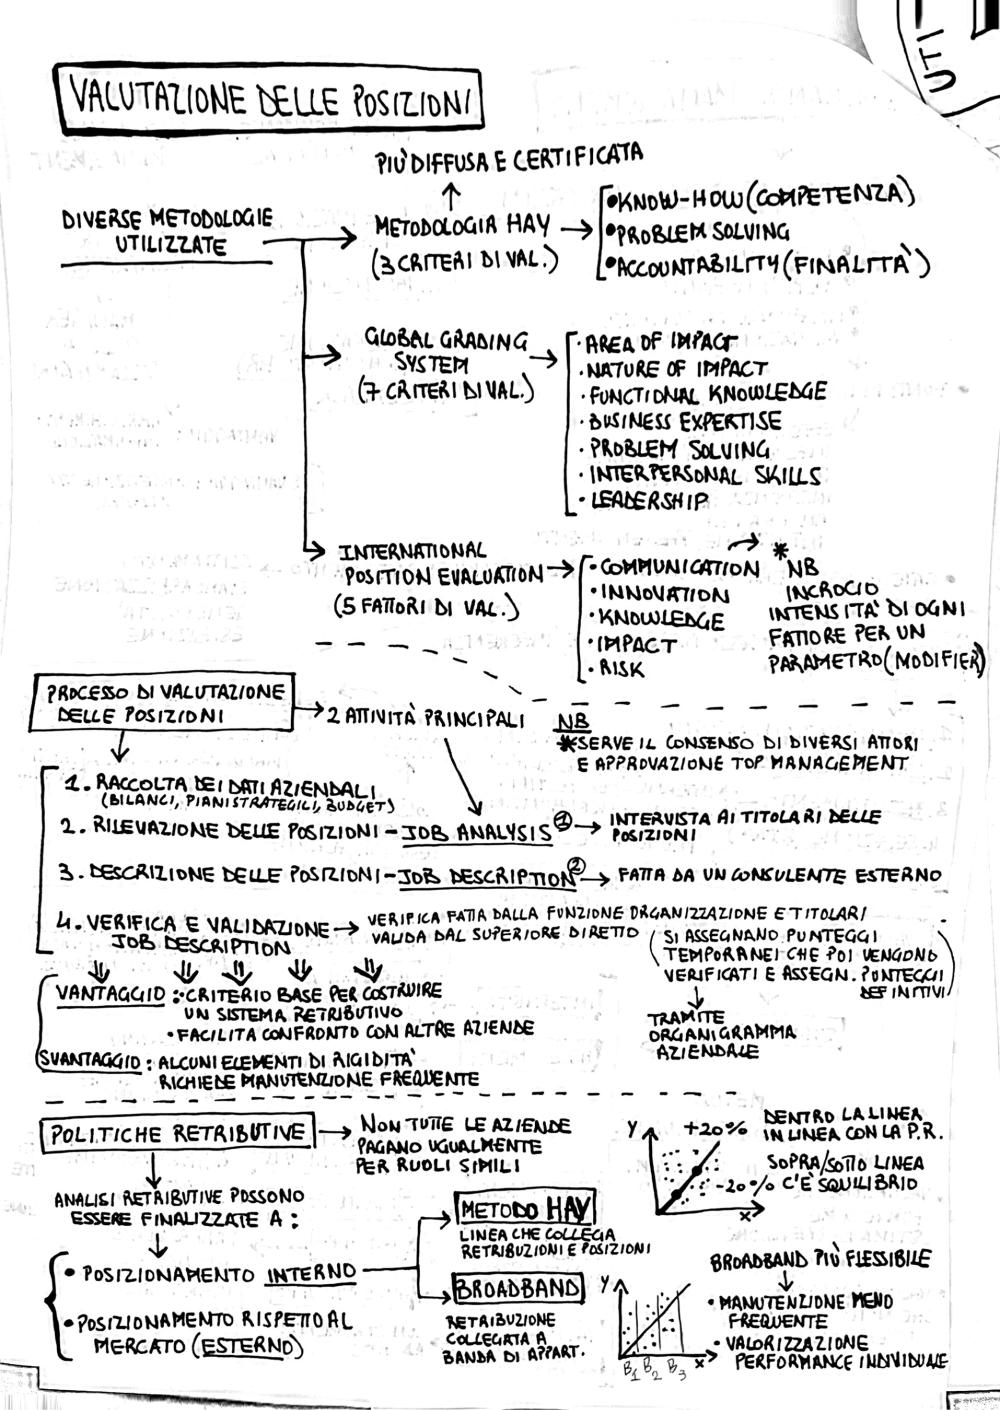 UTI
VALUTAZIONE DELLE POSIZIONI
PIÙ DIFFUSA E CERTIFICATA
DIVERSE METODOLOGIE
UTILIZZATE
METODOLOGIA HAY
(3 CRITERI DI VAL.)
• KNOW-HOW (COMPETENZA)
• PROBLEM SOLVING
• ACCOUNTABILITY (FINALITÀ)
GLOBAL GRADING
SYSTEM
(7 CRITERI DI VAL.)
· AREA OF IMPACT
· NATURE OF IMPACT
· FUNCTIONAL KNOWLEDGE
· BUSINESS EXPERTISE
· PROBLEM SOLVING
· INTERPERSONAL SKILLS
· LEADERSHIP
INTERNATIONAL
POSITION EVALUATION
(5 FATTORI DI VAL.)
· COMMUNICATION
· INNOVATION
· KNOWLEDGE
· IMPACT
· RISK
*
NB
INCROCIO
INTENSITÀ DI OGNI
FATTORE PER UN
PARAMETRO (MODIFIER)
PROCESSO DI VALUTAZIONE
DELLE POSIZIONI
2 ATTIVITÀ PRINCIPALI
NB
* SERVE IL CONSENSO DI DIVERSI ATTORI
E APPROVAZIONE TOP MANAGEMENT
1. RACCOLTA DEI DATI AZIENDALI
(BILANCI, PIANI STRATEGICI, BUDGET)
2. RILEVAZIONE DELLE POSIZIONI - JOB ANALYSIS ①
INTERVISTA AI TITOLARI DELLE
POSIZIONI
3. DESCRIZIONE DELLE POSIZIONI - JOB DESCRIPTION ②
FATTA DA UN CONSULENTE ESTERNO
4. VERIFICA E VALIDAZIONE
JOB DESCRIPTION
VERIFICA FATTA DALLA FUNZIONE ORGANIZZAZIONE E TITOLARI
VALIDA DAL SUPERIORE DIRETTO
(SI ASSEGNANO PUNTEGGI
TEMPORANEI CHE POI VENGONO
VERIFICATI E ASSEGN. PUNTEGGI
DEFINITIVI)
TRAMITE
ORGANIGRAMMA
AZIENDALE
VANTAGGIO : · CRITERIO BASE PER COSTRUIRE
UN SISTEMA RETRIBUTIVO
• FACILITA CONFRONTO CON ALTRE AZIENDE
SVANTAGGIO : ALCUNI ELEMENTI DI RIGIDITÀ
RICHIEDE MANUTENZIONE FREQUENTE
POLITICHE RETRIBUTIVE
NON TUTTE LE AZIENDE
PAGANO UGUALMENTE
PER RUOLI SIMILI
Y
+20%
-20%
X
DENTRO LA LINEA
IN LINEA CON LA P.R.
SOPRA/SOTTO LINEA
C'È SQUILIBRIO
ANALISI RETRIBUTIVE POSSONO
ESSERE FINALIZZATE A :
• POSIZIONAMENTO INTERNO
• POSIZIONAMENTO RISPETTO AL
MERCATO (ESTERNO)
METODO HAY
LINEA CHE COLLEGA
RETRIBUZIONI E POSIZIONI
BROADBAND
RETRIBUZIONE
COLLEGATA A
BANDA DI APPART.
Y
X
B1 B2 B3
BROADBAND PIÙ FLESSIBILE
• MANUTENZIONE MENO
FREQUENTE
• VALORIZZAZIONE
PERFORMANCE INDIVIDUALE